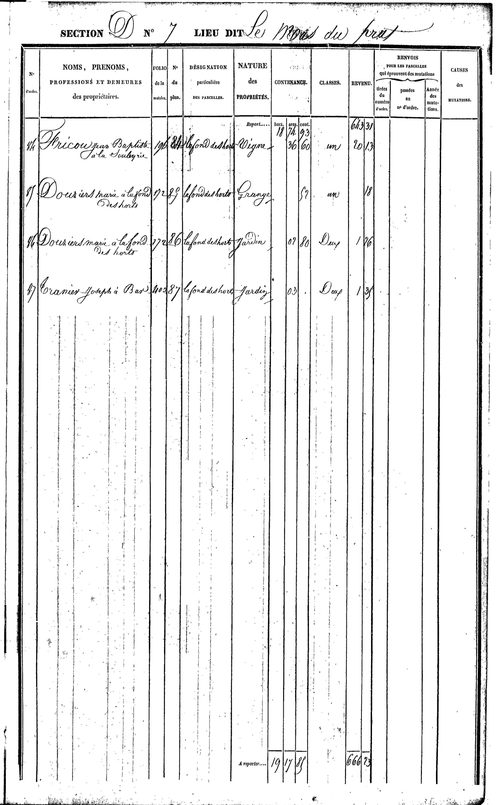 SECTION D N° 7 LIEU DIT Le du prat
N° d'ordre. NOMS, PRENOMS, PROFESSIONS ET DEMEURES des propriétaires. FOLIO de la matrice. N° du plan. DÉSIGNATION particulière DES PARCELLES. NATURE des PROPRIÉTÉS. CONTENANCE. CLASSES. REVENU. RENVOIS POUR LES PARCELLES qui éprouvent des mutations CAUSES des MUTATIONS.
tirées du numéro d'ordre. passées au n° d'ordre. Année des mutations.
hect. ares. cent.
Report..... 18 74 93 643 31
84 Fricou Baptiste 84 la fond des horts Vigne 36 60 un 20 13
à la
85 Douziers marie à la fond 172 85 la fond des horts Grange 52 un 18
des horts
86 Douziers marie à la fond 172 86 la fond des horts Jardin 02 80 Deux 1 26
des horts
87 Tranier Joseph à Bar 402 87 la fond des horts Jardin 03 . Deux 1 35
A reporter.... 19 17 85 666 23